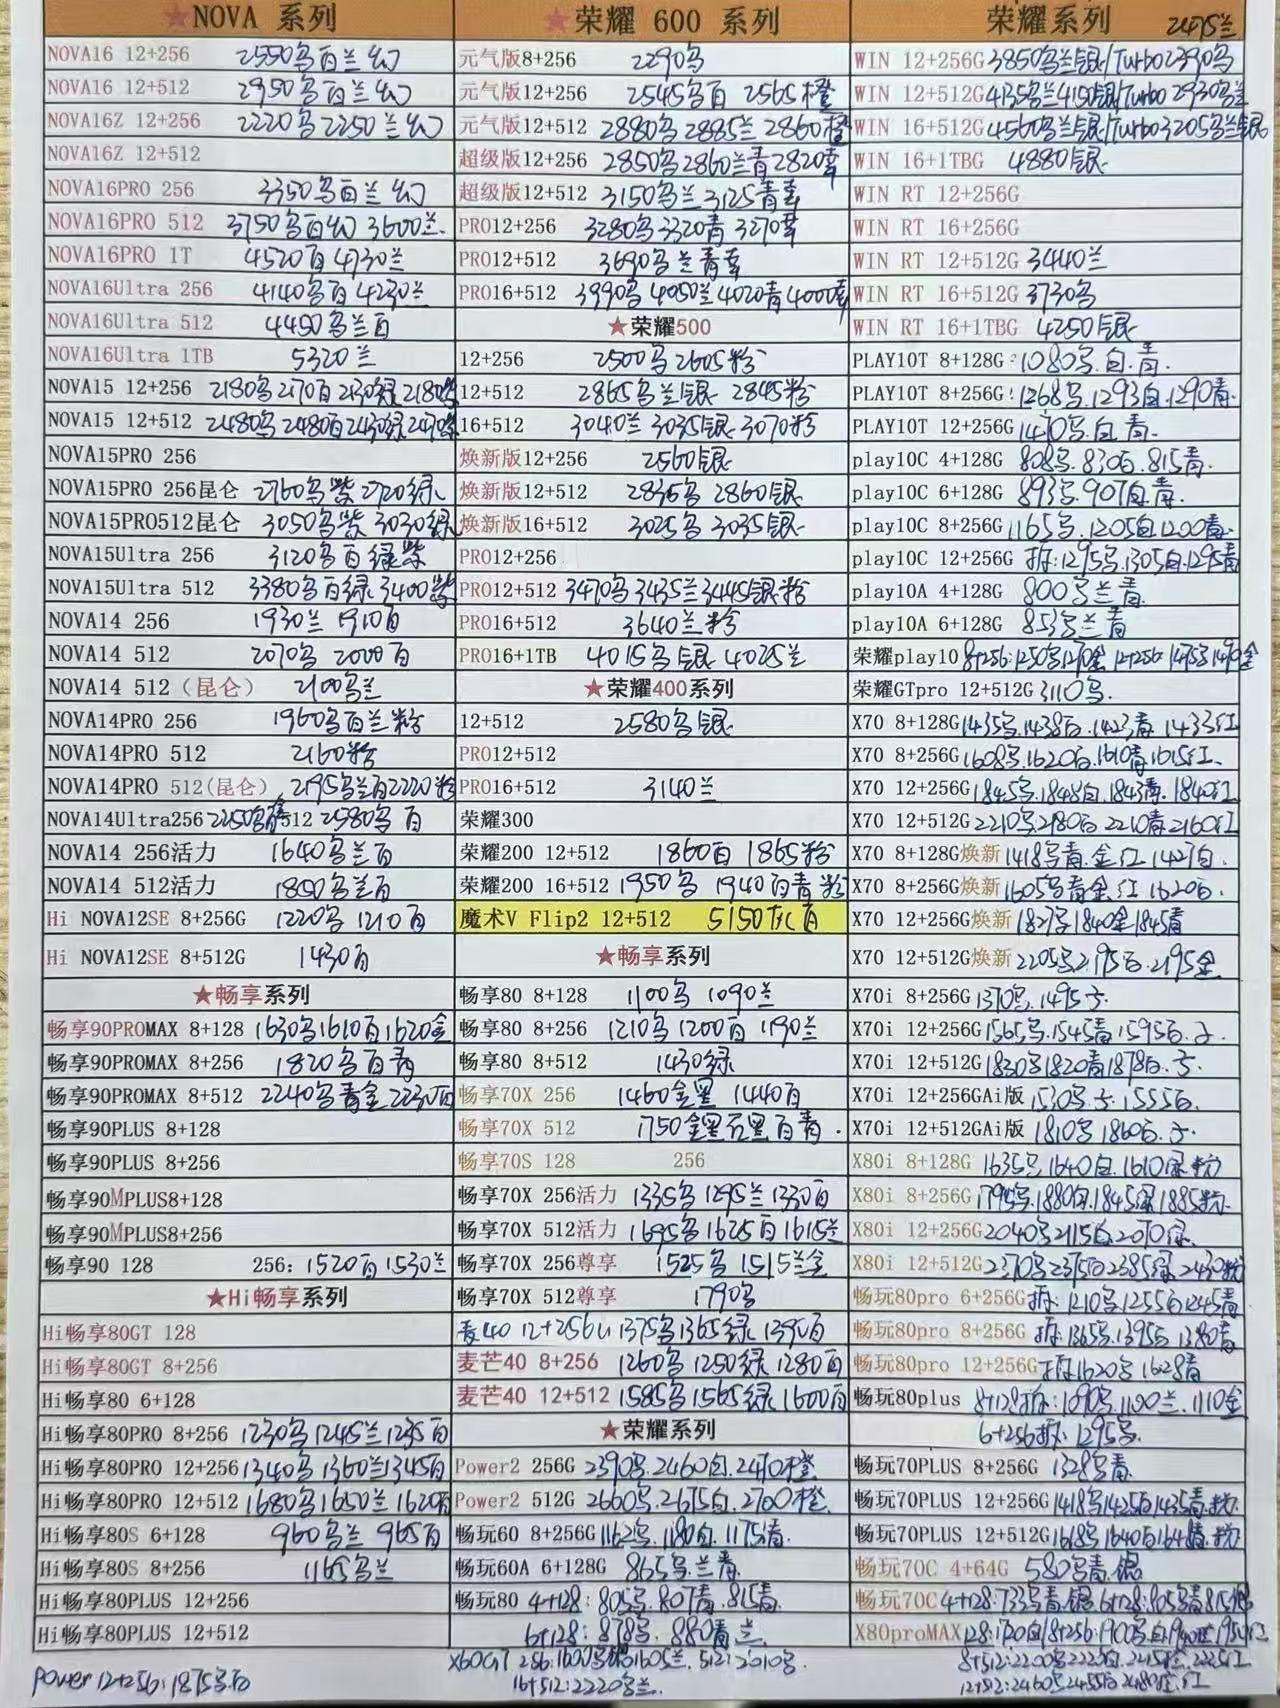 ★NOVA 系列
NOVA16 12+256 2550乌百兰幻
NOVA16 12+512 2950乌百兰幻
NOVA16Z 12+256 2220乌2250兰幻
NOVA16Z 12+512
NOVA16PRO 256 3350乌百兰幻
NOVA16PRO 512 3750乌百幻 3600兰
NOVA16PRO 1T 4520百4730兰
NOVA16Ultra 256 4140乌百4230兰
NOVA16Ultra 512 4490乌兰百
NOVA16Ultra 1TB 5320兰
NOVA15 12+256 2180乌2170百2130绿2180紫
NOVA15 12+512 2480乌2480百2430绿2470紫
NOVA15PRO 256
NOVA15PRO 256昆仑 2760乌紫2720绿
NOVA15PRO512昆仑 3050乌紫 3030绿
NOVA15Ultra 256 3120乌百绿紫
NOVA15Ultra 512 3380乌百绿3400紫
NOVA14 256 1930兰1910百
NOVA14 512 2070乌 2000百
NOVA14 512（昆仑） 2100乌兰
NOVA14PRO 256 1960乌百兰粉
NOVA14PRO 512 2160粉
NOVA14PRO 512(昆仑) 2195乌兰百2220粉
NOVA14Ultra256 2250乌 512 2580乌百
NOVA14 256活力 1640乌兰百
NOVA14 512活力 1800乌兰百
Hi NOVA12SE 8+256G 1220乌1210百
Hi NOVA12SE 8+512G 1430百
★畅享系列
畅享90PROMAX 8+128 1630乌1610百1620金
畅享90PROMAX 8+256 1820乌百青
畅享90PROMAX 8+512 2240乌青金2230百
畅享90PLUS 8+128
畅享90PLUS 8+256
畅享90MPLUS8+128
畅享90MPLUS8+256
畅享90 128 256: 1520百1530兰
★Hi畅享系列
Hi畅享80GT 128
Hi畅享80GT 8+256
Hi畅享80 6+128
Hi畅享80PRO 8+256 1230乌1245兰1235百
Hi畅享80PRO 12+256 1340乌1360兰1345百
Hi畅享80PRO 12+512 1680乌1650兰1620百
Hi畅享80S 6+128 960乌兰 965百
Hi畅享80S 8+256 1165乌兰
Hi畅享80PLUS 12+256
Hi畅享80PLUS 12+512
power 12+256:1875乌百
★荣耀 600 系列
元气版8+256 2290乌
元气版12+256 2545乌百 2565橙
元气版12+512 2880乌2885兰2860橙
超级版12+256 2850乌2860兰青2820幸
超级版12+512 3150乌兰3125青幸
PRO12+256 3280乌3320青3270幸
PRO12+512 3690乌兰青幸
PRO16+512 3990乌4050兰4020青4000幸
★荣耀500
12+256 2500乌2605粉
12+512 2865乌兰银 2845粉
16+512 3040兰3035银3070粉
焕新版12+256 2560银
焕新版12+512 2836乌 2860银
焕新版16+512 3025乌3035银
PRO12+256
PRO12+512 3470乌3435兰3445银粉
PRO16+512 3640兰粉
PRO16+1TB 4015乌银 4025兰
★荣耀400系列
12+512 2580乌银
PRO12+512
PRO16+512 3140兰
荣耀300
荣耀200 12+512 1860百1865粉
荣耀200 16+512 1950乌 1940百青粉
魔术V Flip2 12+512 5150灰百
★畅享系列
畅享80 8+128 1100乌1090兰
畅享80 8+256 1210乌1200百1190兰
畅享80 8+512 1430绿
畅享70X 256 1460金黑 1440百
畅享70X 512 1750金黑 百青
畅享70S 128 256
畅享70X 256活力 1335乌1295兰1330百
畅享70X 512活力 1695乌1625百1615兰
畅享70X 256尊享 1525乌 1515兰金
畅享70X 512尊享 1790乌
麦40 12+256 1375乌1365绿1390百
麦芒40 8+256 1260乌1250绿1280百
麦芒40 12+512 1585乌1565绿1600百
★荣耀系列
Power2 256G 2390乌.2460白.2470橙
Power2 512G 2660乌.2675白.2700橙
畅玩60 8+256G 1162乌.1180白.1175青
畅玩60A 6+128G 865乌.兰青
畅玩80 4+128: 805乌.807青.815青
6+128: 878乌. 880青兰
X60GT 256:1600乌 1605兰. 512:2010乌
16+512:2220乌兰
荣耀系列 2475兰
WIN 12+256G 3850乌兰银/Turbo2390乌
WIN 12+512G 4135乌兰4150银/Turbo 2930乌兰
WIN 16+512G 4560乌兰银/Turbo3205乌兰银
WIN 16+1TBG 4880银
WIN RT 12+256G
WIN RT 16+256G
WIN RT 12+512G 3440兰
WIN RT 16+512G 3730乌
WIN RT 16+1TBG 4250银
PLAY10T 8+128G: 1080乌.白.青.
PLAY10T 8+256G: 1268乌.1293白.1290青
PLAY10T 12+256G 1470乌.白青
play10C 4+128G 808乌.830白.815青
play10C 6+128G 893乌.907白.青
play10C 8+256G 1165乌.1205白1200青
play10C 12+256G 拆:1295乌.1305白.1295青
play10A 4+128G 800乌兰青
play10A 6+128G 853乌兰青
荣耀play10 8+256:1250乌1270金 12+256 1475乌1490金
荣耀GTpro 12+512G 3110乌.
X70 8+128G 1435乌.1438白.1423青.1433红
X70 8+256G 1608乌.1620白.1610青1615红
X70 12+256G 1845乌.1848白.1843青.1840红
X70 12+512G 2210乌2180白2210青2160红
X70 8+128G焕新 1418乌青.金.红 1427白
X70 8+256G焕新 1605乌青金.红1620白
X70 12+256G焕新 1827乌1840金1845青
X70 12+512G焕新 2205乌2195白.2195金
X70i 8+256G 1370乌.1495
X70i 12+256G 1565乌.1545青1595白
X70i 12+512G 1830乌1820青1878白
X70i 12+256GAi版 1530乌 1555白
X70i 12+512GAi版 1810乌1860白
X80i 8+128G 1635乌1640白.1610绿粉
X80i 8+256G 1795乌.1880白.1845绿1885粉
X80i 12+256G 2040乌2115白2070绿
X80i 12+512G 2370乌2375白2385绿2430粉
畅玩80pro 6+256G 拆:1210乌1255白1245青
畅玩80pro 8+256G 拆:1365乌.1395白 1380青
畅玩80pro 12+256G 拆1620乌 1628青
畅玩80plus 8+128拆:1090乌.1100兰.1110金
6+256拆: 1295乌.
畅玩70PLUS 8+256G 1328乌青
畅玩70PLUS 12+256G 1418乌1425白1435青.粉
畅玩70PLUS 12+512G 1618乌1640白1648青.粉
畅玩70C 4+64G 580乌青.银
畅玩70C 4+128:733乌青.银.6+128:805乌青815银
X80proMAX 128:1720白/8+256:1900乌白1940 1950红
8+512:2200乌2220白.2215 2225红
12+512:2460乌2455白2480 红